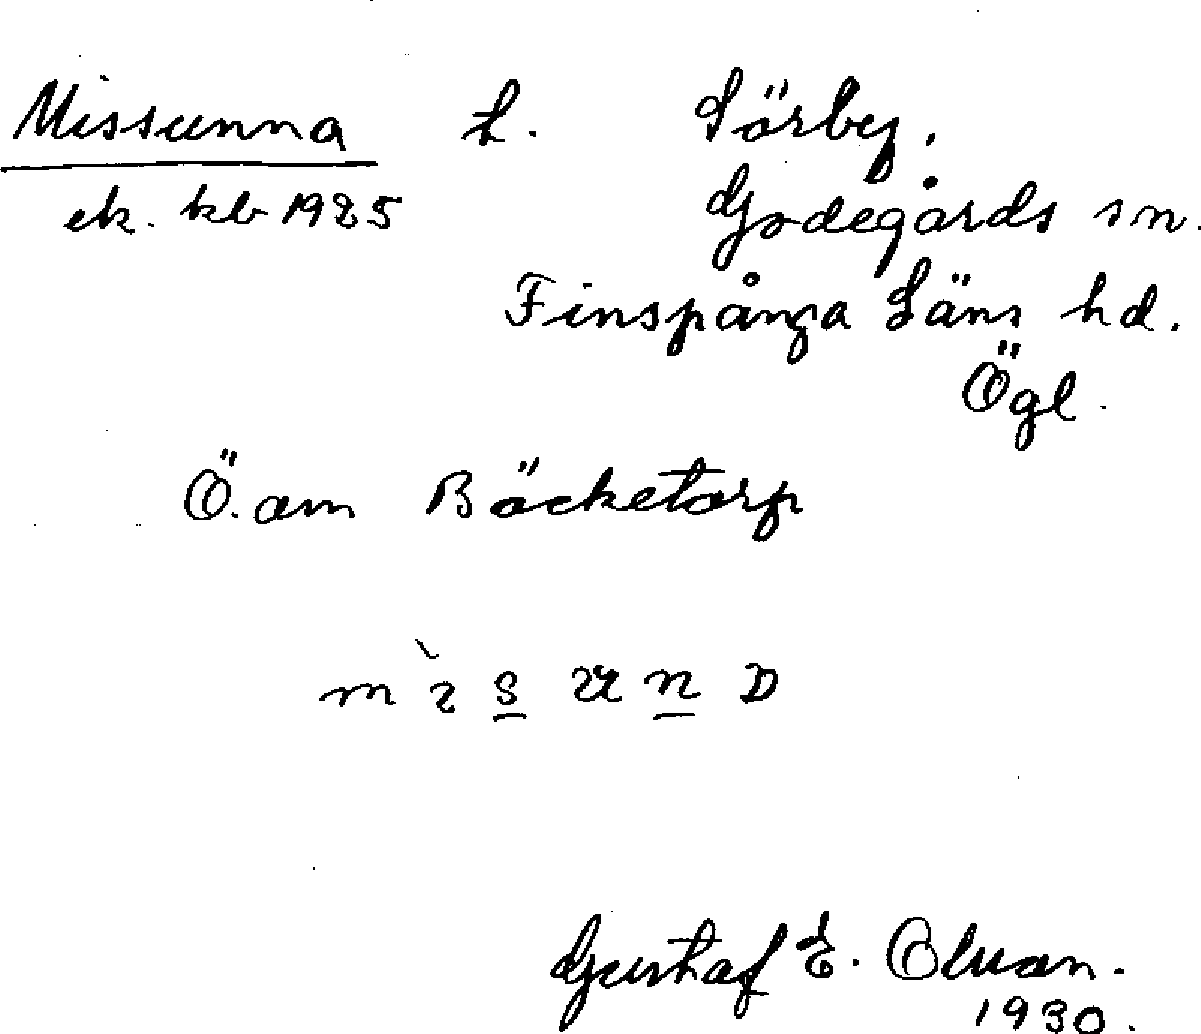 Missunna t. Sörby,
ek. kb 1925 Godegårds sn.
Finspånga Läns hd.
Ögl.
Ö. om Bäcketorp
Gustaf E. Olsson.
1930.